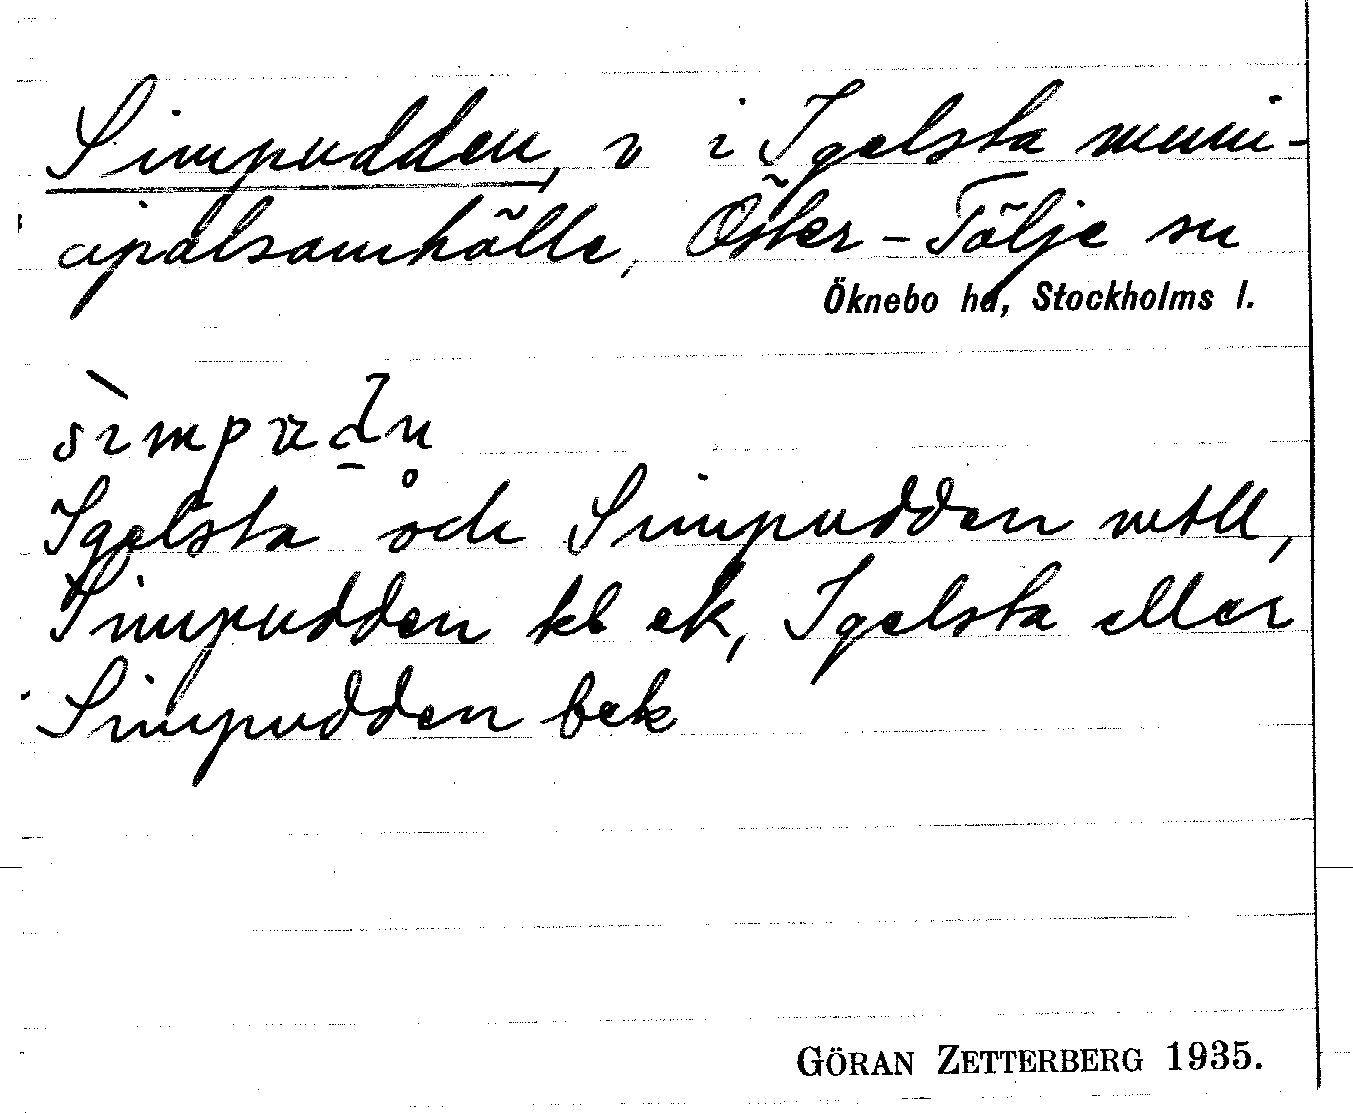 Simpudden, v i Igelsta muni-
cipalsamhälle, Öster-Tälje sn
Öknebo hd, Stockholms l.
Igelsta och Simpudden mtll,
Simpudden kb ek, Igelsta eller
Simpudden bek
GÖRAN ZETTERBERG 1935.